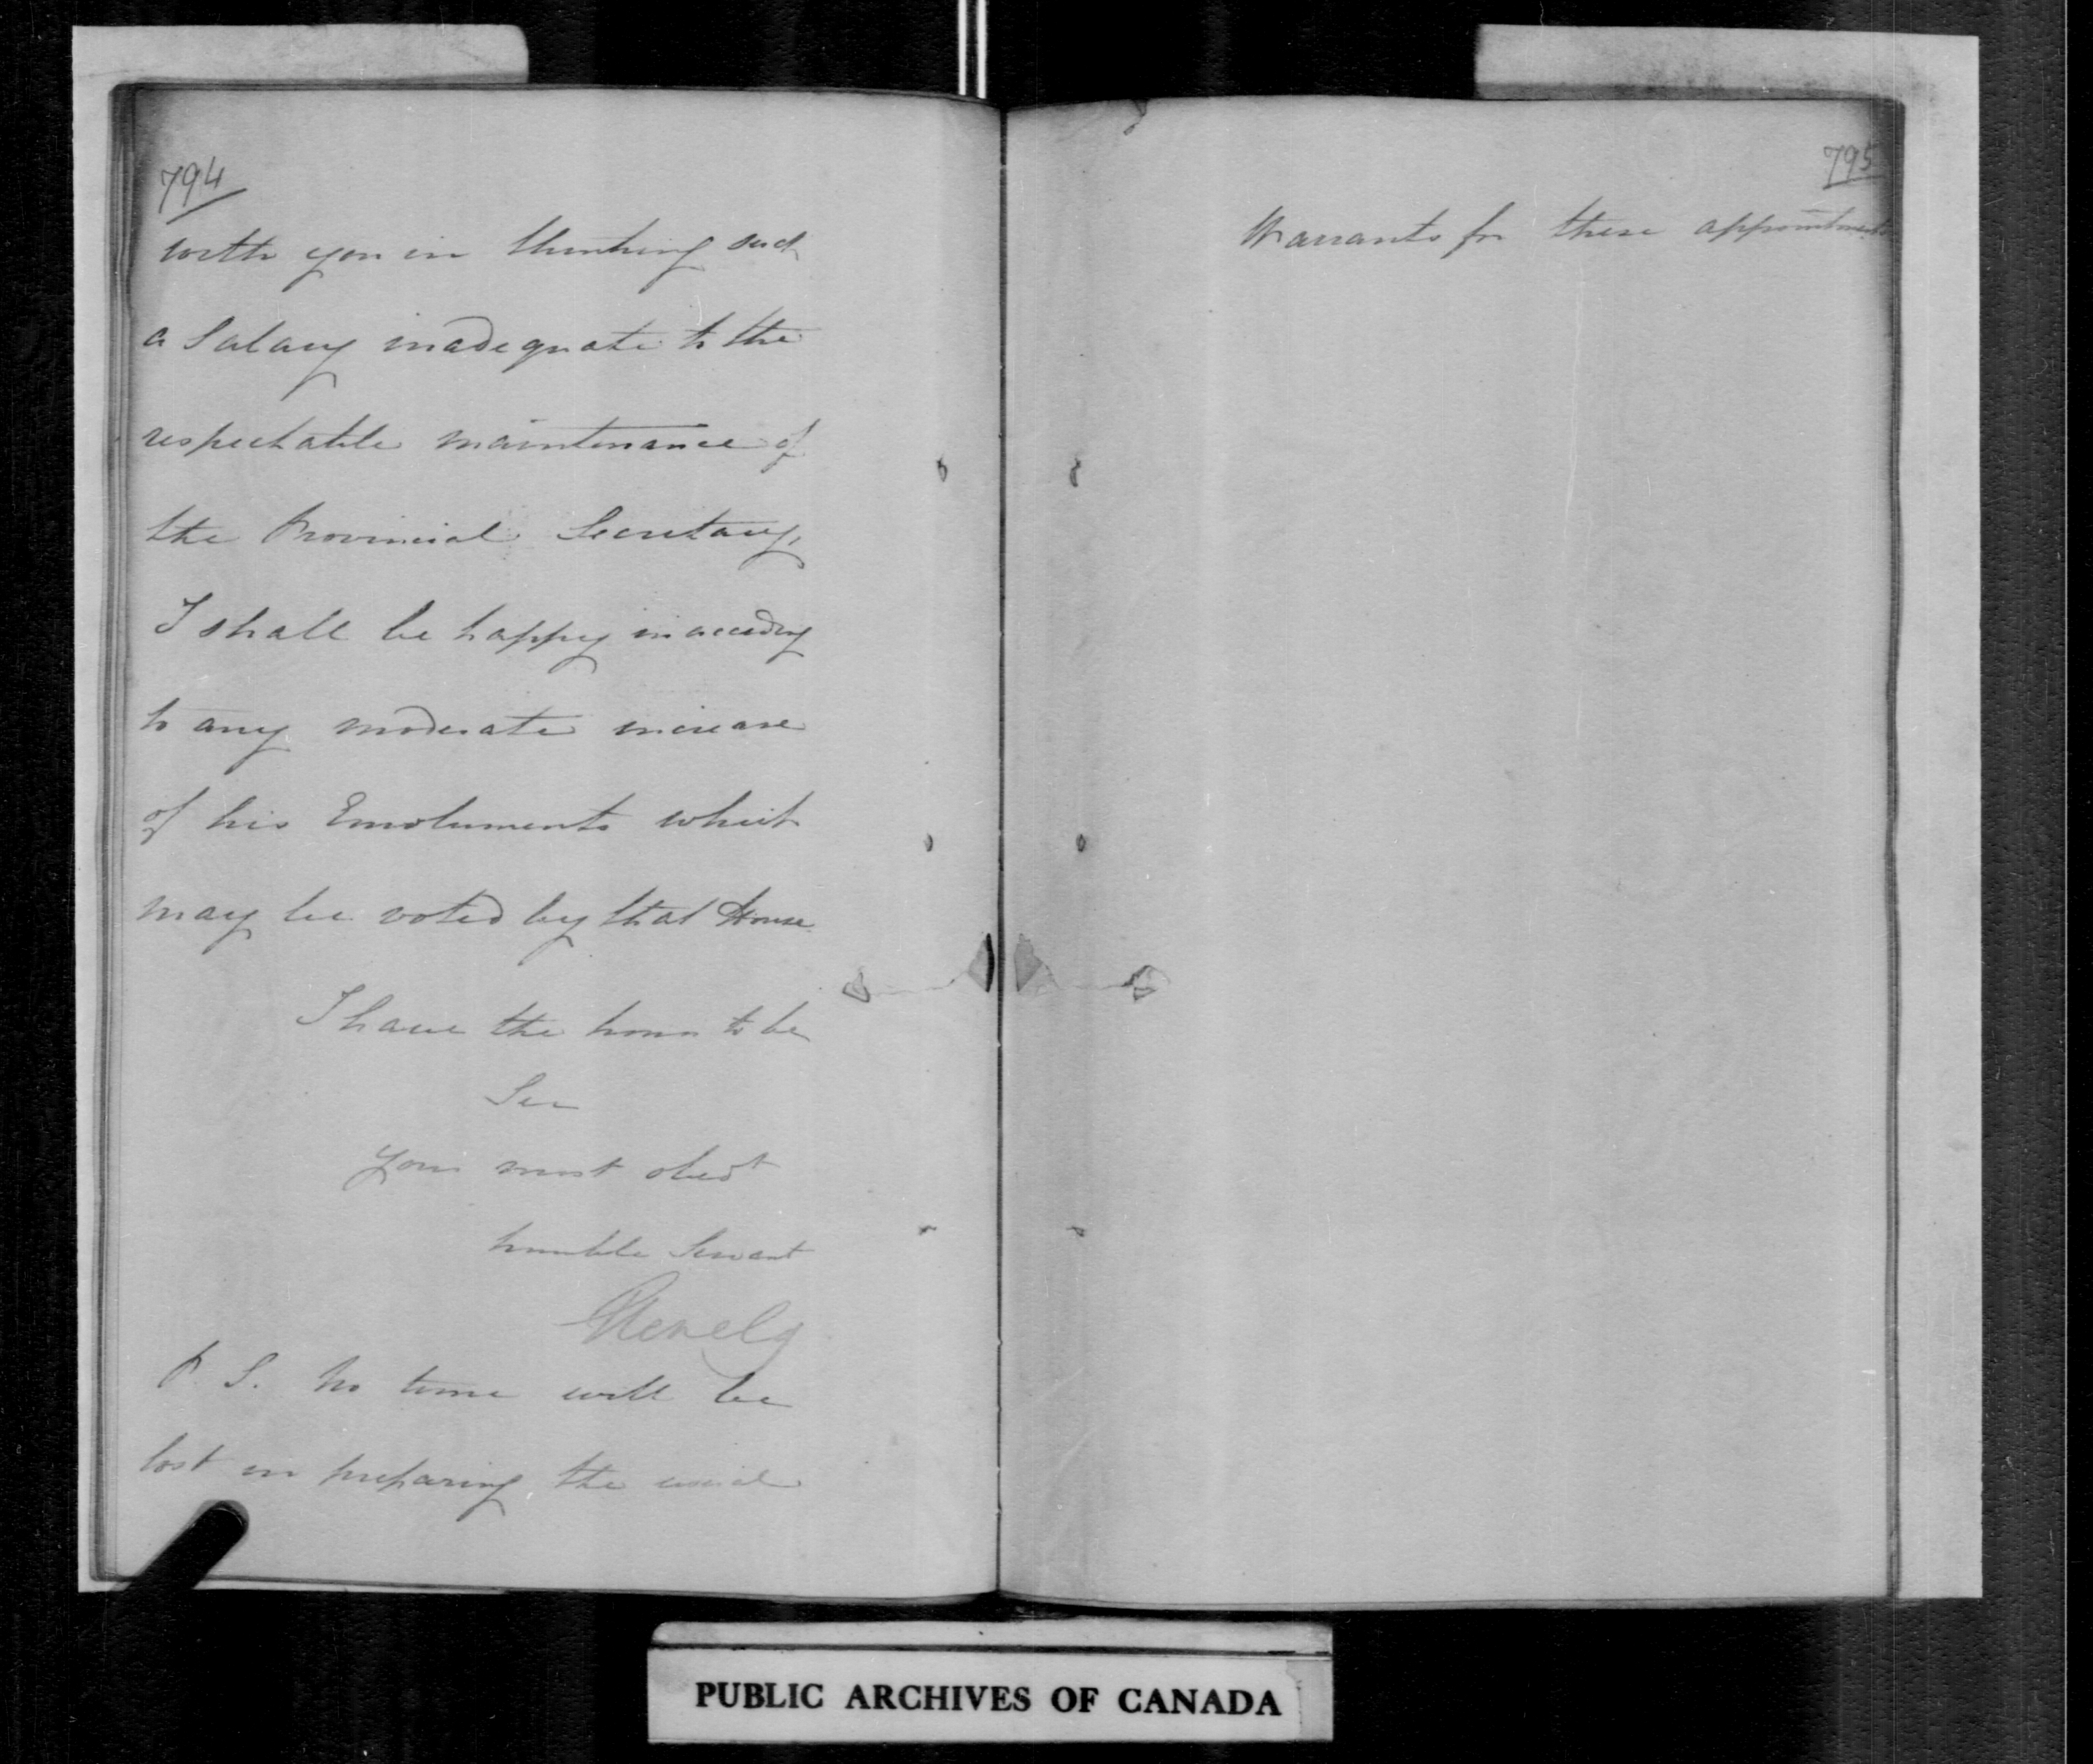 794
with you in thinking such
a Salary inadequate to the
respectable maintenance of
the Provincial Secretary,
I shall be happy in acceding
to any moderate increase
of his Emoluments which
may be voted by that House.
I have the honor to be
Sir
Your most obedt
humble Servant
Glenelg
P. S. No time will be
lost in preparing the usual
795
Warrants for these appointments
PUBLIC ARCHIVES OF CANADA